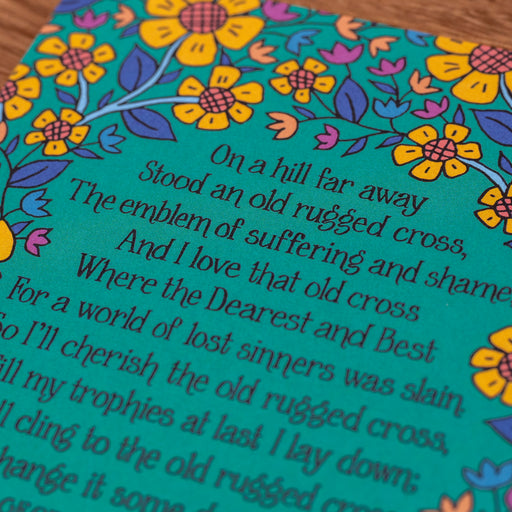 On a hill far away
Stood an old rugged cross,
The emblem of suffering and shame,
And I love that old cross
Where the Dearest and Best
For a world of lost sinners was slain
So I'll cherish the old rugged cross,
Till my trophies at last I lay down;
I'll cling to the old rugged cross
change it some